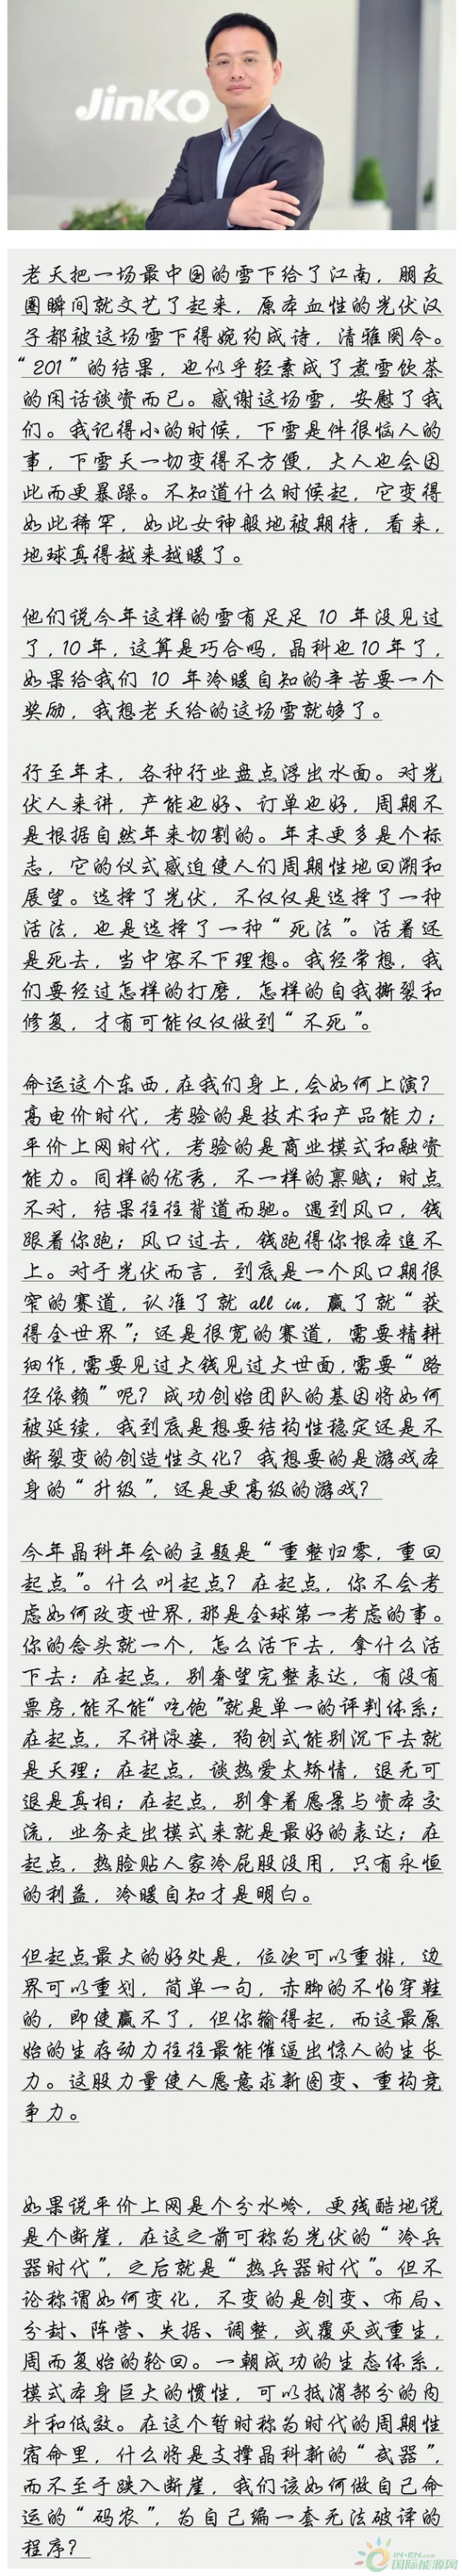 JinKO
老天把一场最中国的雪下给了江南，朋友
圈瞬间就文艺了起来，原本血性的光伏汉
子都被这场雪下得婉约成诗，清雅阕令。
“201”的结果，也似乎轻素成了煮雪饮茶
的闲话谈资而已。感谢这场雪，安慰了我
们。我记得小的时候，下雪是件很恼人的
事，下雪天一切变得不方便，大人也会因
此而更暴躁。不知道什么时候起，它变得
如此稀罕，如此女神般地被期待，看来，
地球真得越来越暖了。
他们说今年这样的雪有足足 10 年没见过
了，10年，这算是巧合吗，晶科也10年了，
如果给我们 10 年冷暖自知的辛苦要一个
奖励，我想老天给的这场雪就够了。
行至年末，各种行业盘点浮出水面。对光
伏人来讲，产能也好、订单也好，周期不
是根据自然年来切割的。年末更多是个标
志，它的仪式感迫使人们周期性地回溯和
展望。选择了光伏，不仅仅是选择了一种
活法，也是选择了一种“死法”。活着还
是死去，当中容不下理想。我经常想，我
们要经过怎样的打磨，怎样的自我撕裂和
修复，才有可能仅仅做到“不死”。
命运这个东西，在我们身上，会如何上演？
高电价时代，考验的是技术和产品能力；
平价上网时代，考验的是商业模式和融资
能力。同样的优秀，不一样的禀赋；时点
不对，结果往往背道而驰。遇到风口，钱
跟着你跑；风口过去，钱跑得你根本追不
上。对于光伏而言，到底是一个风口期很
窄的赛道，认准了就 all in，赢了就“获
得全世界”；还是很宽的赛道，需要精耕
细作，需要见过大钱见过大世面，需要“路
径依赖”呢？成功创始团队的基因将如何
被延续，我到底是想要结构性稳定还是不
断裂变的创造性文化？我想要的是游戏本
身的“升级”，还是更高级的游戏？
今年晶科年会的主题是“重整归零，重回
起点”。什么叫起点？在起点，你不会考
虑如何改变世界，那是全球第一考虑的事。
你的念头就一个，怎么活下去，拿什么活
下去：在起点，别奢望完整表达，有没有
票房，能不能“吃饱”就是单一的评判体系；
在起点，不讲泳姿，狗刨式能别沉下去就
是天理；在起点，谈热爱太矫情，退无可
退是真相；在起点，别拿着愿景与资本交
流，业务走出模式来就是最好的表达；在
起点，热脸贴人家冷屁股没用，只有永恒
的利益，冷暖自知才是明白。
但起点最大的好处是，位次可以重排，边
界可以重划，简单一句，赤脚的不怕穿鞋
的，即使赢不了，但你输得起，而这最原
始的生存动力往往最能催逼出惊人的生长
力。这股力量使人愿意求新图变、重构竞
争力。
如果说平价上网是个分水岭，更残酷地说
是个断崖，在这之前可称为光伏的“冷兵
器时代”，之后就是“热兵器时代”。但不
论称谓如何变化，不变的是创变、布局、
分封、阵营、失据、调整，或覆灭或重生，
周而复始的轮回。一朝成功的生态体系，
模式本身巨大的惯性，可以抵消部分的内
斗和低效。在这个暂时称为时代的周期性
宿命里，什么将是支撑晶科新的“武器”，
而不至于跌入断崖，我们该如何做自己命
运的“码农”，为自己编一套无法破译的
程序？
IN-EN.com
国际能源网